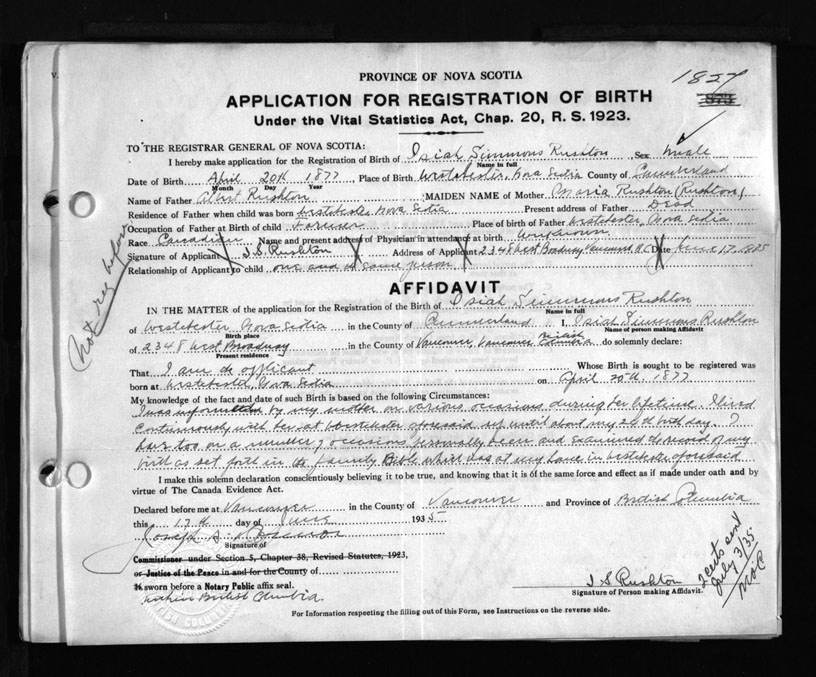 PROVINCE OF NOVA SCOTIA
1827
APPLICATION FOR REGISTRATION OF BIRTH
573
Under the Vital Statistics Act, Chap. 20, R. S. 1923.
TO THE REGISTRAR GENERAL OF NOVA SCOTIA:
I hereby make application for the Registration of Birth of Isiah Simmons Rushton Sex male
Name in full
Date of Birth April 20th 1877 Place of Birth Westchester, Nova Scotia County of Cumberland
Month Day Year
Name of Father Albert Rushton MAIDEN NAME of Mother Maria Rushton (Rushton)
Residence of Father when child was born Westchester, Nova Scotia Present address of Father Dead
Occupation of Father at Birth of child Farmer Place of birth of Father Westchester, Nova Scotia
Race Canadian Name and present address of Physician in attendance at birth Unknown
Signature of Applicant I S Rushton Address of Applicant 2348 West Broadway, Vancouver B.C. Date June 17, 1935
Relationship of Applicant to child one and the same person
Not reg before
AFFIDAVIT
IN THE MATTER of the application for the Registration of the Birth of Isiah Simmons Rushton
Name in full
of Westchester Nova Scotia in the County of Cumberland I, Isiah Simmons Rushton
Birth place Name of person making Affidavit
of 2348 West Broadway in the County of Vancouver, Vancouver British Columbia do solemnly declare:
Present residence
That I am the applicant Whose Birth is sought to be registered was
born at Westchester, Nova Scotia on April 20th 1877
My knowledge of the fact and date of such Birth is based on the following Circumstances:
I was informed by my mother on various occasions during her lifetime. I lived
continuously with her at Westchester aforesaid up until about my 20th birth day. I
have too on a number of occasions personally seen and examined the record of my
birth as set forth in the family Bible which was at my home in Westchester aforesaid
I make this solemn declaration conscientiously believing it to be true, and knowing that it is of the same force and effect as if made under oath and by
virtue of The Canada Evidence Act.
Declared before me at Vancouver in the County of Vancouver and Province of British Columbia
this 17th day of June 1935
Joseph
Signature of
Commissioner under Section 5, Chapter 38, Revised Statutes, 1923,
or Justice of the Peace in and for the County of
If sworn before a Notary Public affix seal.
within British Columbia.
I S Rushton
Signature of Person making Affidavit.
2 certs sent
July 3/35
For Information respecting the filling out of this Form, see Instructions on the reverse side.